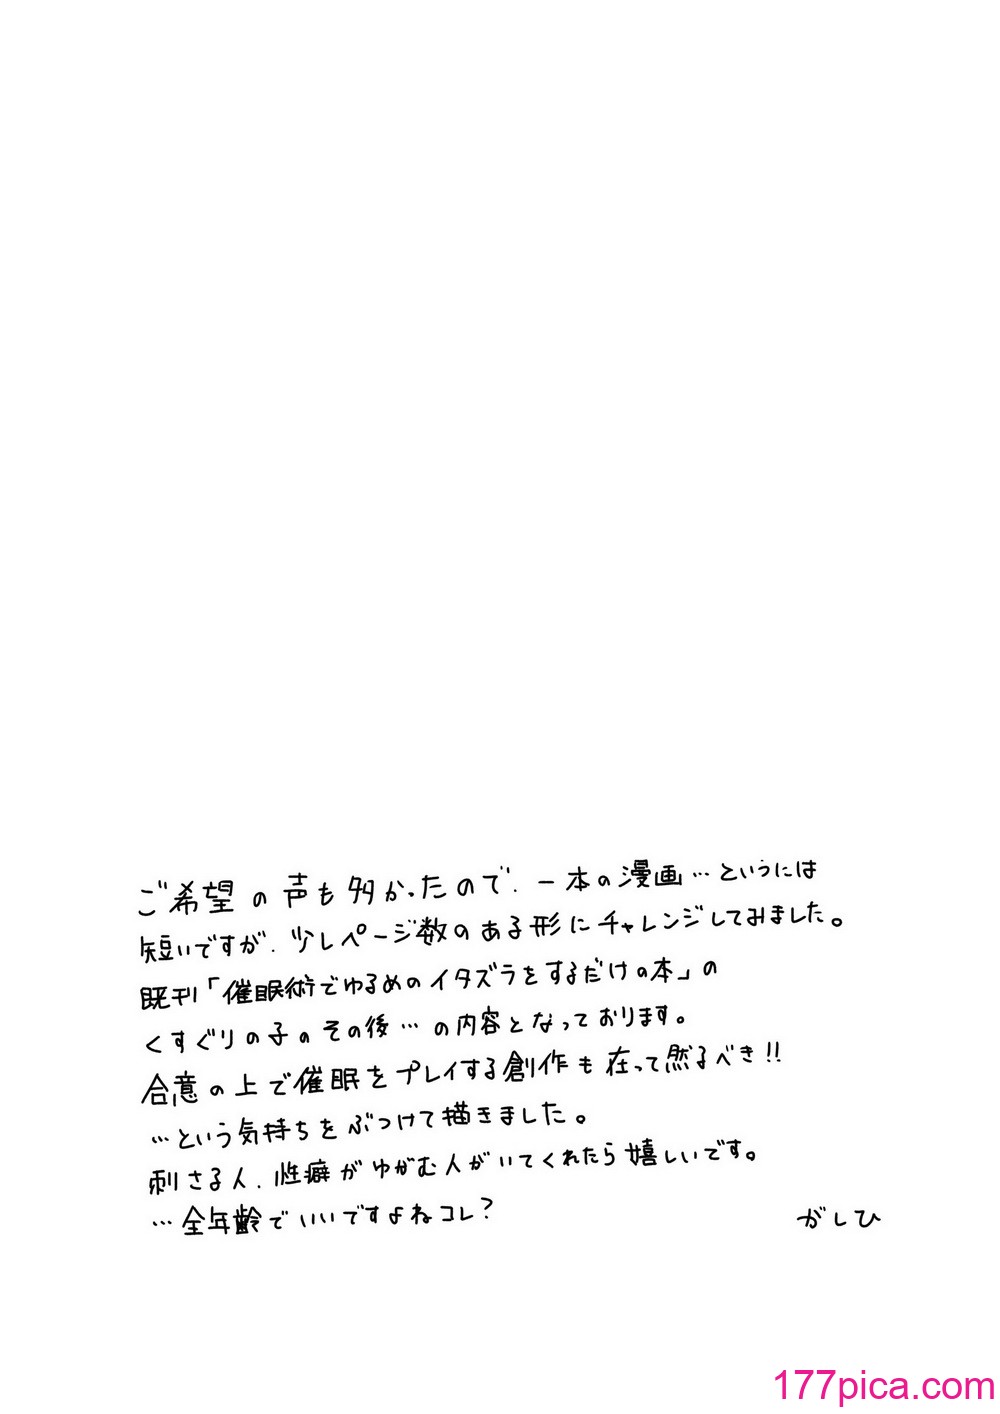 ご希望の声も多かったので、一本の漫画…というには
短いですが、少しページ数のある形にチャレンジしてみました。
既刊「催眠術でゆるめのイタズラをするだけの本」の
くすぐりの子のその後…の内容となっております。
合意の上で催眠をプレイする創作も在って然るべき!!
…という気持ちをぶつけて描きました。
刺さる人、性癖がゆがむ人がいてくれたら嬉しいです。
…全年齢でいいですよねコレ?
がしひ
177pica.com